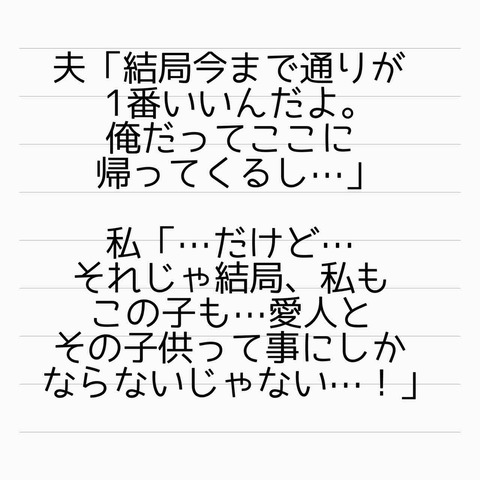 夫「結局今まで通りが
1番いいんだよ。
俺だってここに
帰ってくるし…」
私「…だけど…
それじゃ結局、私も
この子も…愛人と
その子供って事にしか
ならないじゃない…！」